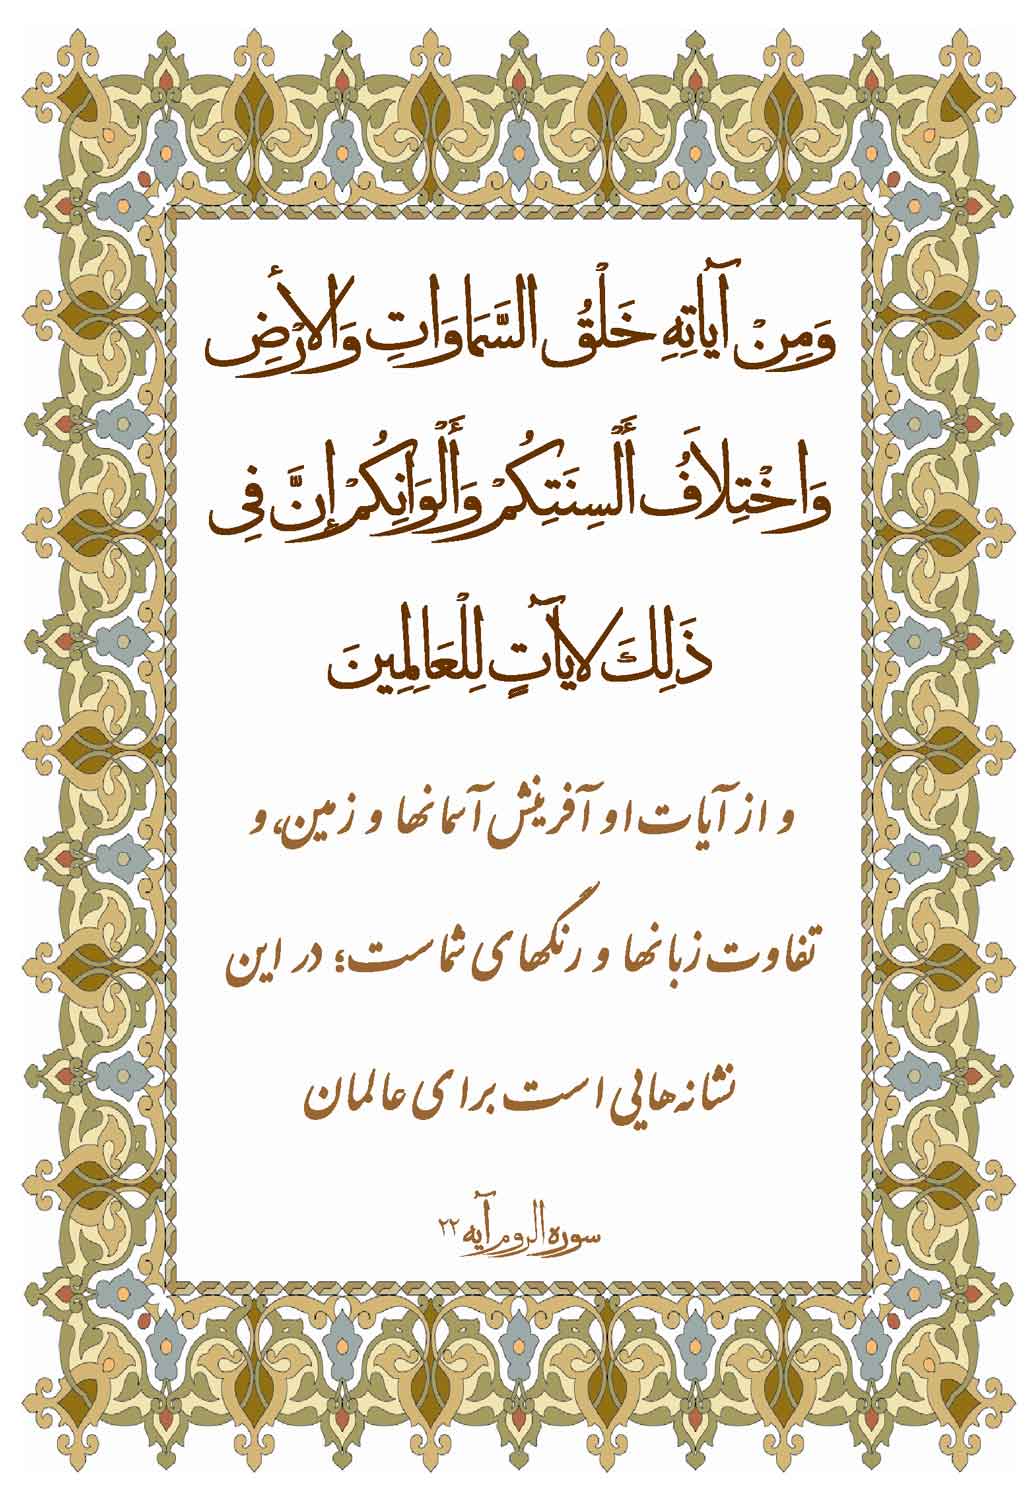 وَمِنْ آيَاتِهِ خَلْقُ السَّمَاوَاتِ وَالأَرْضِ
وَاخْتِلاَفُ أَلْسِنَتِكُمْ وَأَلْوَانِكُمْ إِنَّ فِي
ذَلِكَ لَآيَاتٍ لِلْعَالِمِينَ
و از آیات او آفرینش آسمانها و زمین، و
تفاوت زبانها و رنگهای شماست؛ در این
نشانه‌هایی است برای عالمان
سوره الروم آیه ۲۲